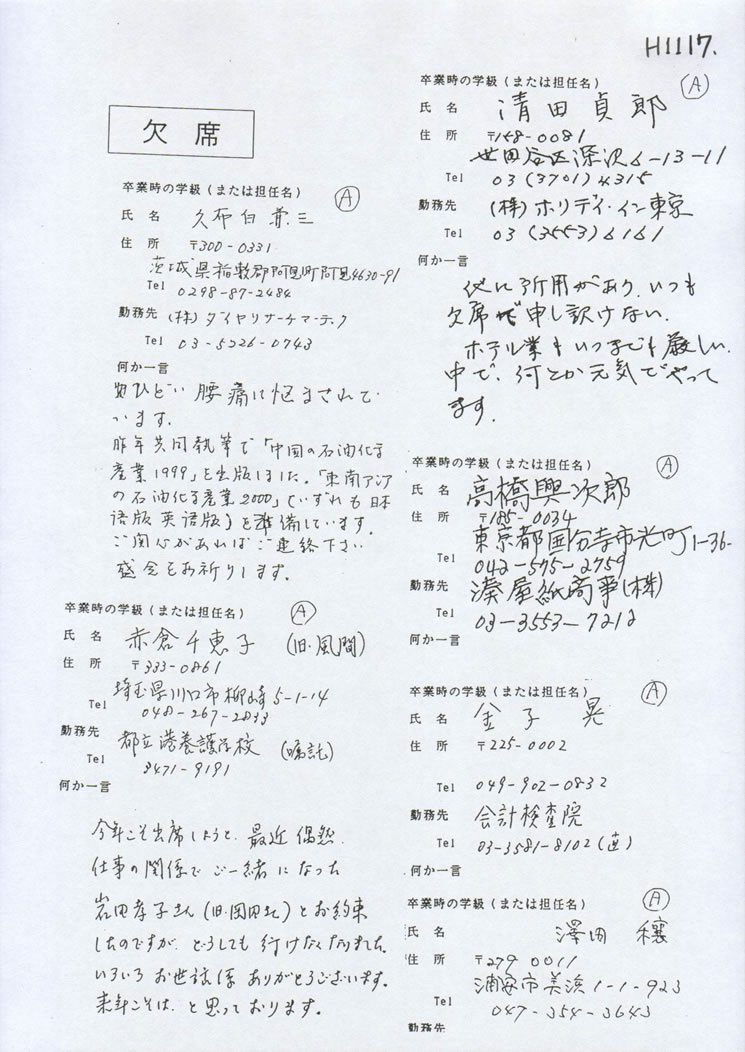 H1117.
欠席
卒業時の学級(または担任名) Ⓐ
氏 名 久布白兼三
住 所 〒300-0331
茨城県稲敷郡阿見町阿見4630-91
Tel 0298-87-2484
勤務先 (株)ダイヤリサーチマーテック
Tel 03-5226-0743
何か一言
ひどい腰痛に悩まされて
います。
昨年共同執筆で「中国の石油化学
産業1999」を出版しました。「東南アジア
の石油化学産業2000」(いずれも日本
語版英語版)を準備しています。
ご関心があればご連絡下さい
盛会をお祈りします。
卒業時の学級(または担任名) Ⓐ
氏 名 赤倉千恵子 (旧・風間)
住 所 〒333-0861
埼玉県川口市柳崎5-1-14
Tel 048-267-2833
勤務先 都立港養護学校 (嘱託)
Tel 3471-9191
何か一言
今年こそ出席しようと、最近偶然
仕事の関係でご一緒になった
岩田孝子さん(旧・)とお約束
したのですが、どうしても行けなくなりました。
いろいろお世話係ありがとうございます。
来年こそは、と思っております。
卒業時の学級(または担任名) Ⓐ
氏 名 清田貞郎
住 所 〒158-0081
世田谷区深沢6-13-11
Tel 03(3701)4315
勤務先 (株)ホリデイ・イン東京
Tel 03(3553)6161
何か一言
他に所用があり、いつも
欠席で申し訳けない。
ホテル業もいつまでも厳しい
中で、何とか元気でやって
ます。
卒業時の学級(または担任名) Ⓐ
氏 名 高橋興次郎
住 所 〒185-0034
東京都国分寺市光町1-36-
Tel 042-575-2759
勤務先 湊屋紙商事(株)
Tel 03-3553-7212
何か一言
卒業時の学級(または担任名) Ⓐ
氏 名 金子 晃
住 所 〒225-0002
Tel 049-902-0832
勤務先 会計検査院
Tel 03-3581-8102(直)
何か一言
卒業時の学級(または担任名) Ⓐ
氏 名 澤田 穰
住 所 〒279 0011
浦安市美浜1-1-923
Tel 047-354-3643
勤務先